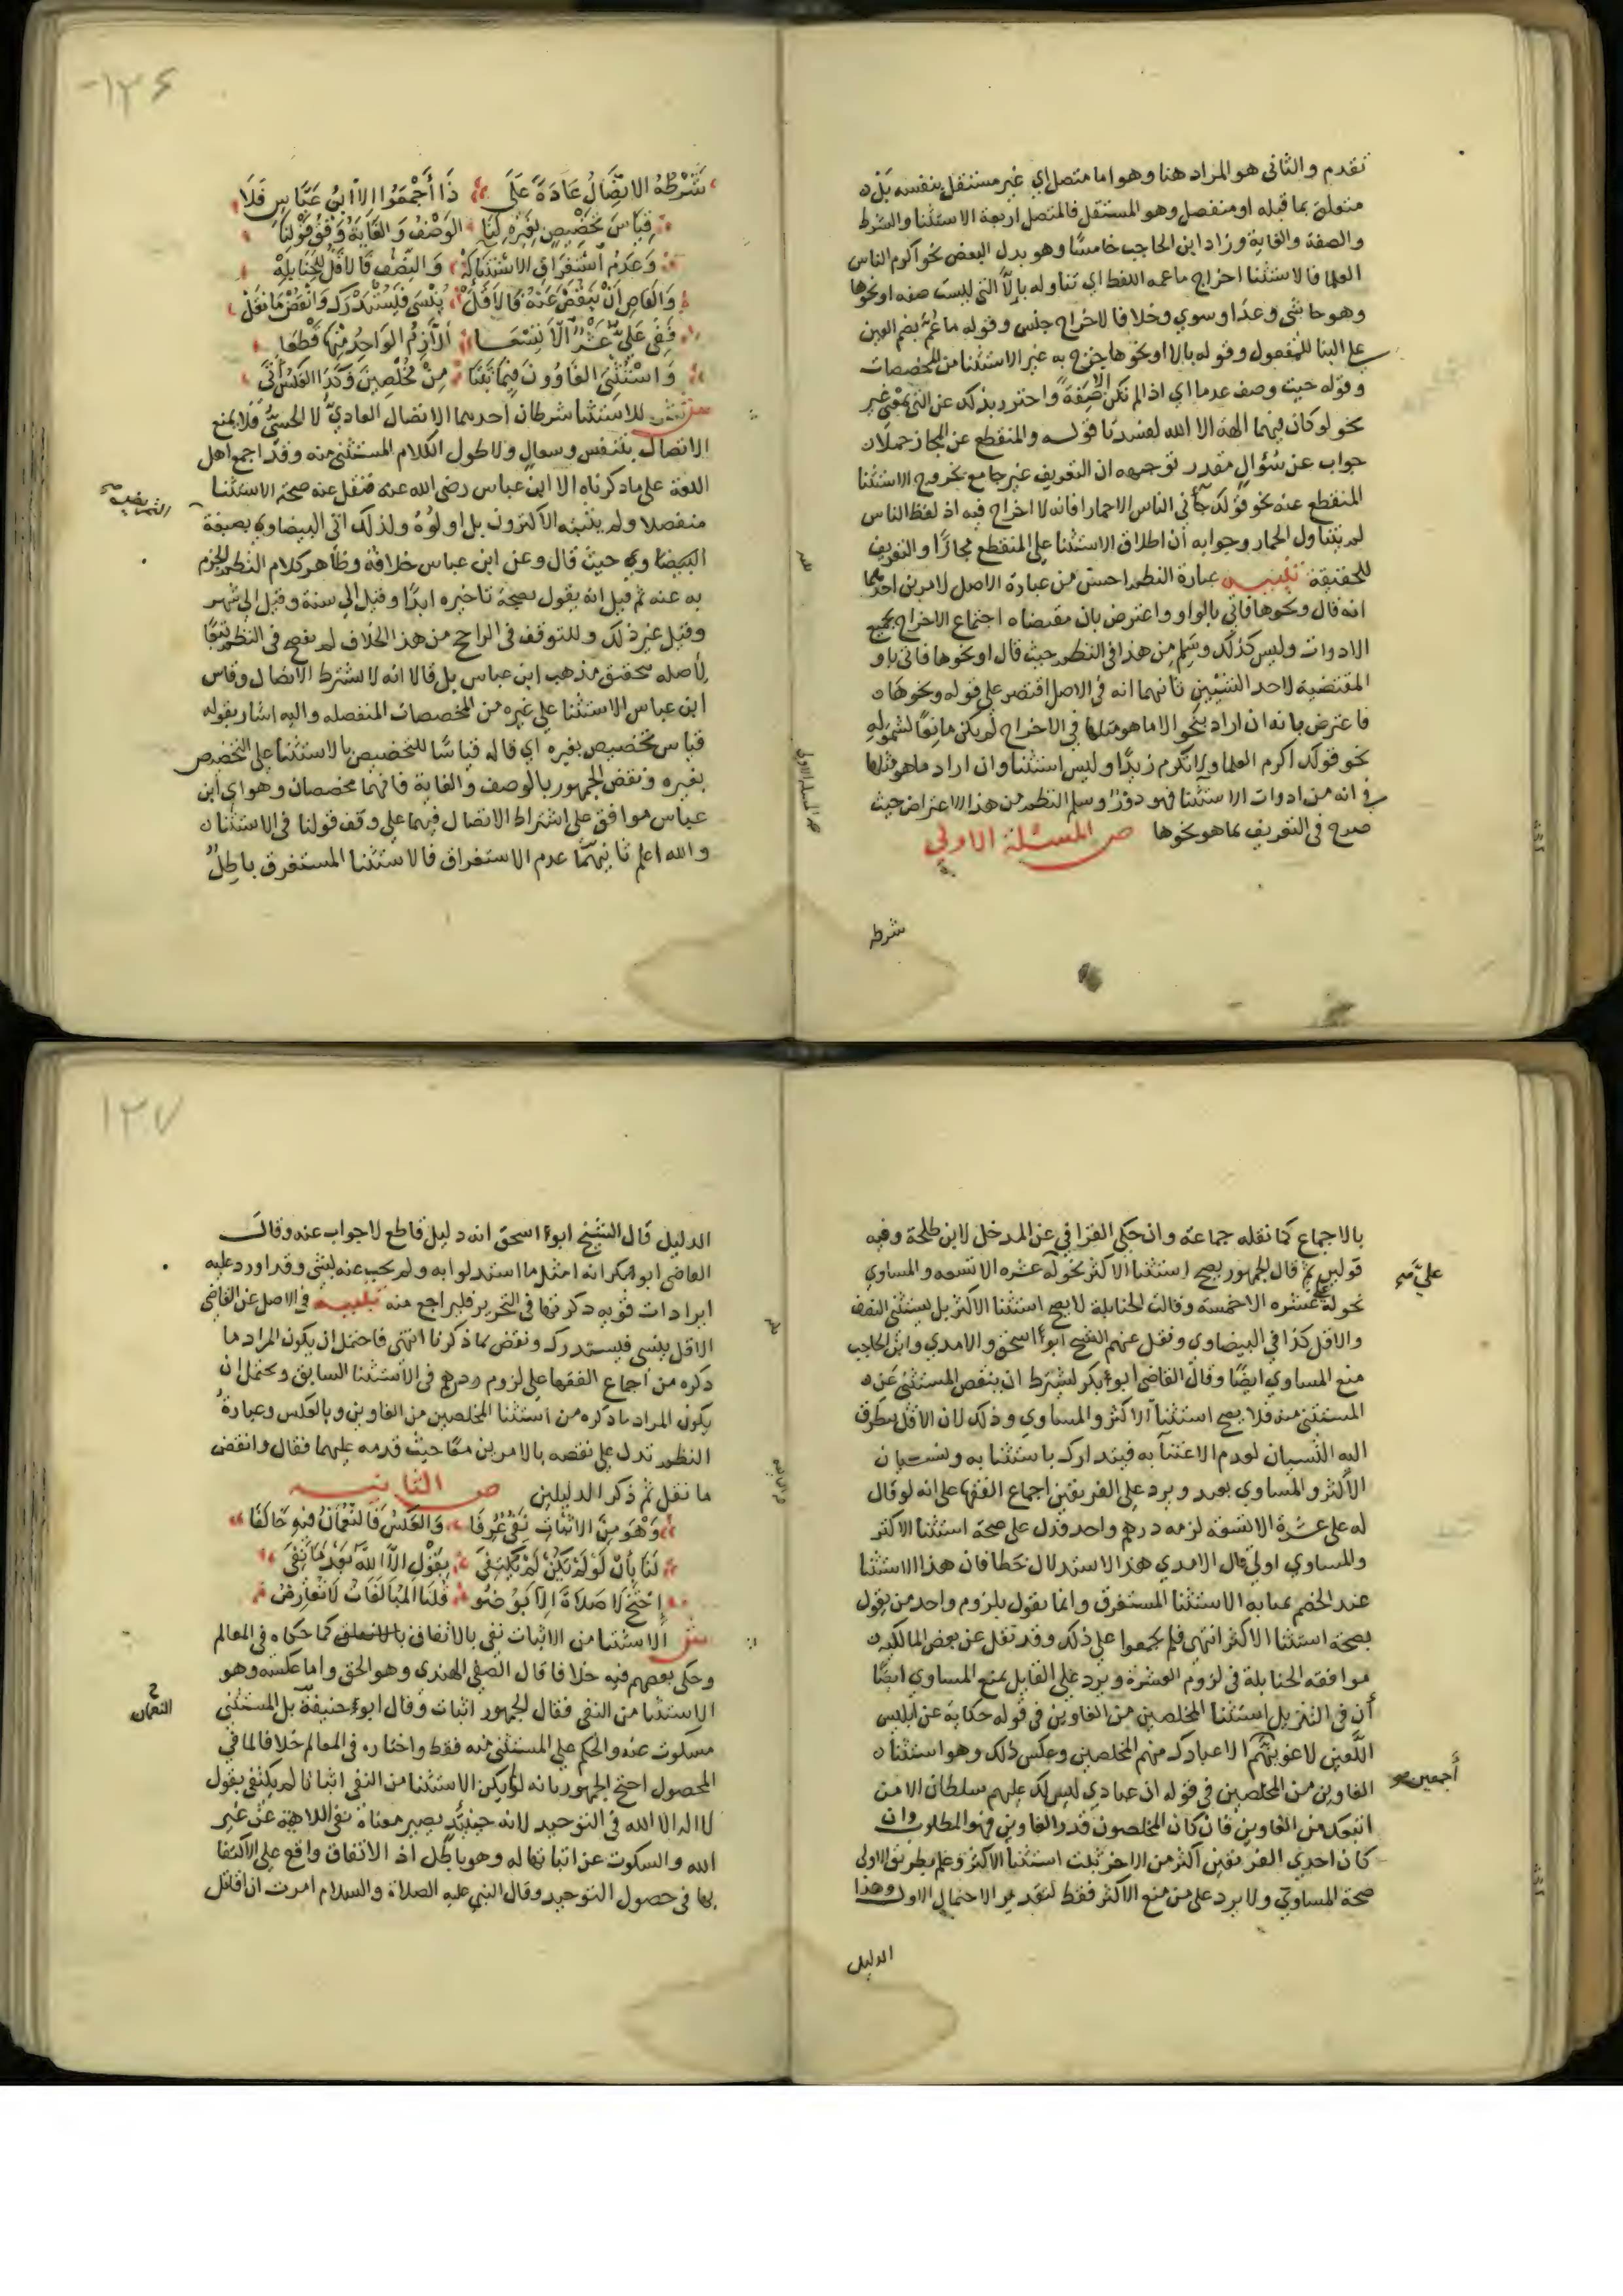 ١٣٦
تقدم والثانى هو المراد هنا وهو اما متصل اي غير مستقل بنفسه بل ه
متعلق بما قبله او منفصل وهو المستقل فالمتصل اربعة الاستثنا والشرط
والصفة والغاية وزاد ابن الحاجب خامسًا وهو بدل البعض نحو اكرم الناس
العلما فالاستثنا اخراج ما عمه اللفظ اي تناوله بالا التى ليست صفه او نحوها
وهو حاشى وعدا وسوي وخلا فالاخراج جنس وقوله ما عُمَّ بضم العين
على البنا للمفعول وقوله بالا او نحوها يخرج به غير الاستثنا من المخصصات
وقوله حيث وصف عدما اي اذا لم تكن الا صفةً واحترز بذلك عن التى بمعنى غير
نحو لو كان فيهما الهة الا الله لفسدتا قوله والمنقطع عن المجاز حملا ن
جواب عن سُؤالٍ مقدر توجيهه ان التعريف غير جامع بخروج الاستثنا
المنقطع عنه نحو قولك جآنى الناس الا حمارا فانه لا اخراج فيه اذ لفظ الناس
لم يتناول الحمار وجوابه أن اطلاق الاستثنا على المنقطع مجازًا والتعريف
للحقيقة تنبيه عبارة النظم احسن من عبارة الاصل لامرين احدهما
انه قال ونحوها فاتى بالواو واعترض بان مقتضاه اجتماع الاخراج بجميع
الادوات وليس كذلك وسَلِمَ من هذا فى النظم حيث قال او نحوها فاتى باو
المقتضية لاحد الشيئين ثانيهما انه فى الاصل اقتصر على قوله ونحوها ن
فاعترض بانه ان اراد بنحو الا ما هو مثلها في الاخراج لم يكن مانعًا لشموله
نحو قولك اكرم العلما ولا تكرم زيدًا وليس استثنا وان اراد ما هو مثلها
فى انه من ادوات الاستثنا فهو دورٌ وسلم النظم من هذا الاعتراض حيث
صرح فى التعريف بما هو نحوها ص المسئلة الاولي
شرطه
شَرْطُهُ الاتِّصَالُ عَادَةً عَلَى ذَا أَجْمَعُوا إلا ابنُ عَبَّاسٍ فَلَا
قِيَاسَ تَخْصِيصٍ بِغَيْرِهِ لَنَا الوَصْفُ وَالغَايَةُ وَفْقُ قَوْلِنَا
وَعَدَمُ اسْتِغْرَاقِ الاسْتِثْنَا لَهْ وَالنِّصْفُ فَالأَقَلُّ لِلْحَنَابِلَهْ
وَالقَاضِ أَنْ يَنْقُصَ عَنْهُ فَالأَقَلّْ يُنْسَى فَلِيَسْتَدْرَكْ وَانْقُضْ مَا نَقَلْ
فَفِى عَلَيَّ عَشْرٌ الَّا تِسْعَا أَلْزِمُ الوَاحِدُ مِنْهَا قَطْعَا
وَاسْتُثْنِيَ الغَاوُونَ فِيمَا ثَبَتَا مِنْ مُخْلِصِينَ وَكَذَا العَكْسُ أَتَى
ش للاستثنا شرطان احدهما الاتصال العاديّ لا الحسيّ فلا يمنع
الاتصال بتنفس وسعال ولا طول الكلام المستثنى منه وقد اجمع اهل
اللغة على ما ذكرناه الا ابن عباس رضى الله عنه فنقل عنه صحة الاستثنا
منفصلا ولم يثبته الاكثرون بل اولوُهُ ولذلك اتى البيضاوي بصيغة
البيضاوي حيث قال وعن ابن عباس خلافهُ وظاهر كلام النظم الجزم
به عنه ثم قيل انه يقول بصحة تاخيره ابدًا وقيل الى سنة وقيل الى شهر
وقيل غير ذلك وللتوقف فى الراجح من هذا الخلاف لم يفصح فى النظم تبعًا
لأصله بتحقيق مذهب ابن عباس بل قالا انه لا يشترط الاتصال وقاس
ابن عباس الاستثنا على غيره من المخصصات المنفصله واليه اشار بقوله
قياس تخصيص بغيره اي قاله قياسًا للتخصيص بالاستثنا على التخصيص
بغيره ونقض الجمهور بالوصف والغاية فانهما مخصصان وهو اي ابن
عباس موافق على اشتراط الاتصال فيهما على وقف قولنا فى الاستثنا ن
والله اعلم ثانيهمَا عدم الاستغراق فالاستثنا المستغرق باطلٌ
١٣٧
بالاجماع كما نقله جماعة وان حكى القرافي عن المدخل لابن طلحة وفيه
قولين ثم قال الجمهور يصح استثنا الاكثر نحو له عشره الا تسعه والمساوي
نحو له عشره الا خمسة وقالت الحنابلة لا يصح استثنا الاكثر بل يستثنى النصف
والاقل كذا في البيضاوي ونقل عنهم الشيخ ابو اسحق والامدي وابن الحاجب
منع المساوي ايضًا وقال القاضى ابو بكر يشترط ان ينقص المستثنى عن ه
المستثنى منه فلا يصح استثنا الاكثر والمساوي وذلك لان الاقل يطرق
اليه النسيان لعدم الاعتنآ به فيتدارك باستثنا به ونسيان
الأكثر والمساوي بعيد ويرد على الفريقين اجماع الفقها على انه لو قال
له على عشرة الا تسعة لزمه درهم واحد فدل على صحة استثنا الاكثر
والمساوي اولى قال الامدي هذا الاستدلال خطا فان هذا الاستثنا
عند الخصم بمثابة الاستثنا المستغرق وانما يقول بلزوم واحد من يقول
بصحة استثنا الاكثر انتهى فلم يجمعوا على ذلك وقد نقل عن بعض المالكيه ن
موافقة الحنابلة فى لزوم العشرة ويرد على القايل بمنع المساوي ايضًا
أن فى التنزيل استثنا المخلصين من الغاوين فى قوله حكاية عن ابليس
اللَّعين لاغوينهم الا عبادك منهم المخلصين وعكس ذلك وهو استثنا ن
الغاوين من المخلصين فى قوله ان عبادي ليس لك عليهم سلطان الا من
اتبعك من الغاوين فان كان المخلصون قدر الغاوين فهو المطلوب وان
كان احدى الفريقين اكثر من الاخر ثبت استثنا الاكثر وعلم بطريق الاولى
صحة المساوي ولا يرد على من منع الاكثر فقط لتقدير الاحتمال الاول وهذا
عليّ صح
أجمعين صح
الدليل
الدليل قال الشيخ ابو اسحق انه دليل قاطع لا جواب عنه وقال
القاضى ابو بكر انه امثل ما استدلوا به ولم يجب عنه بشى وقد اورد عليه
ايرادات قويه ذكرتها فى التحرير فليراجع منه تنبيه فى الاصل عن القاضى
الاقل ينسى فليستدرك ونقض بما ذكرنا انتهى فاحتمل ان يكون المراد ما
ذكره من اجماع الفقها على لزوم درهم فى الاستثنا السابق ويحتمل ان
يكون المراد ما ذكره من استثنا المخلصين من الغاوين وبالعكس وعبارةُ
النظم تدل على نقضه بالامرين معًا حيث قدمه عليهما فقال وانقض
ما نقل ثم ذكر الدليلين ص الثانيه
وَهْوَ مِنَ الاثبَاتِ نَفْيٌ عُرِفَا وَالعَكْسُ فَالنُّعْمَانُ فِيهِ خَالَفَا
لَنَا بِأَنْ لَوْ لَمْ يَكُنْ لَمْ يُكْتَفَى بِقَوْلِ الَّا اللَّهُ بَعْدَ مَا نَفَى
احْتَجَّ لَا صَلَاةَ إِلَّا بِوُضُو قُلنَا المُبَالَغَاتُ لَا تُعَارِضُ
ش الاستثنا من الاثبات نفى بالاتفاق كما حكاه فى المعالم
وحكى بعضهم فيه خلافا قال الصفى الهندي وهو الحق واما عكسه وهو
الاستثنا من النفى فقال الجمهور اثبات وقال ابو حنيفة بل المستثنى
مسكوت عنه والحكم على المستثنى منه فقط واختاره فى المعالم خلافا لما فى
المحصول احتج الجمهور بانه لو لم يكن الاستثنا من النفى اثباتا لم يكتفى بقول
لا اله الا الله فى التوحيد لانه حينئذٍ يصير معناهُ نفى الالاهية عن غير
الله والسكوت عن اثباتها له وهو باطل اذ الاتفاق واقع على الاكتفا
بها فى حصول التوحيد وقال النبي عليه الصلاة والسلام امرت ان اقاتل
النعمان